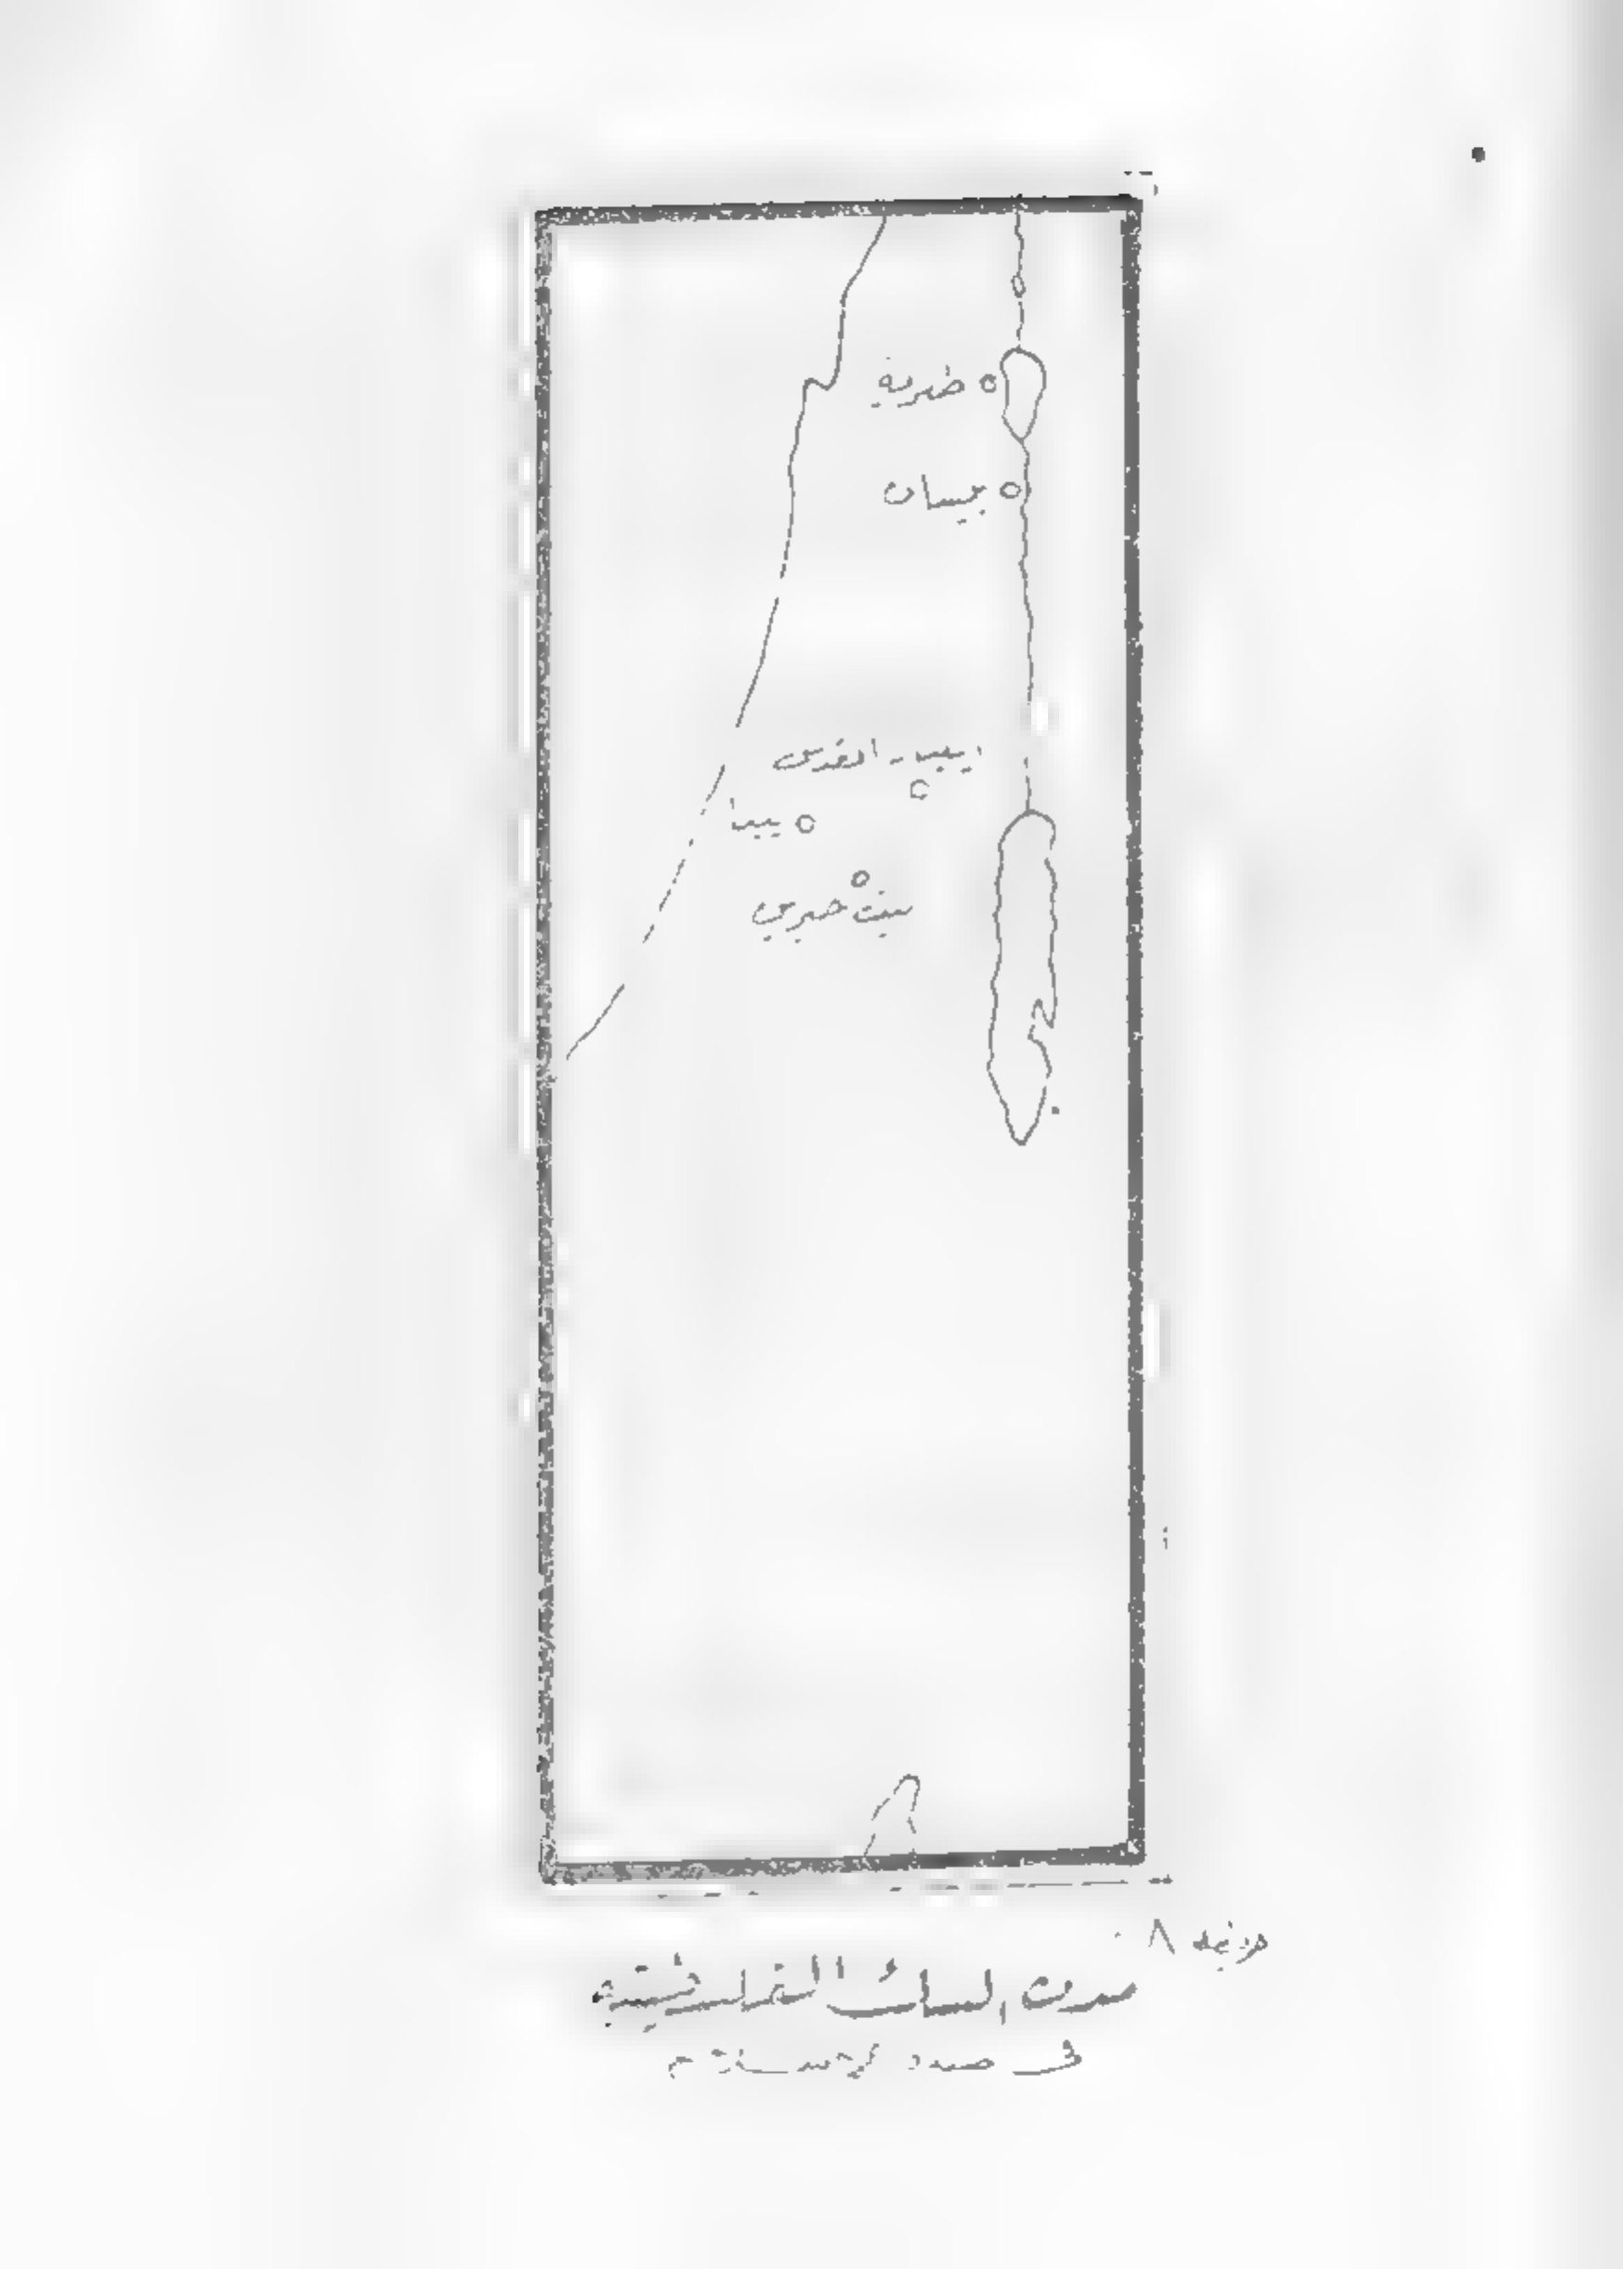 طبرية
بيسان
القدس
يبنا
بيت جبرين
خريطة ٨
مدن السك الفلسطينية
في صدر الإسلام